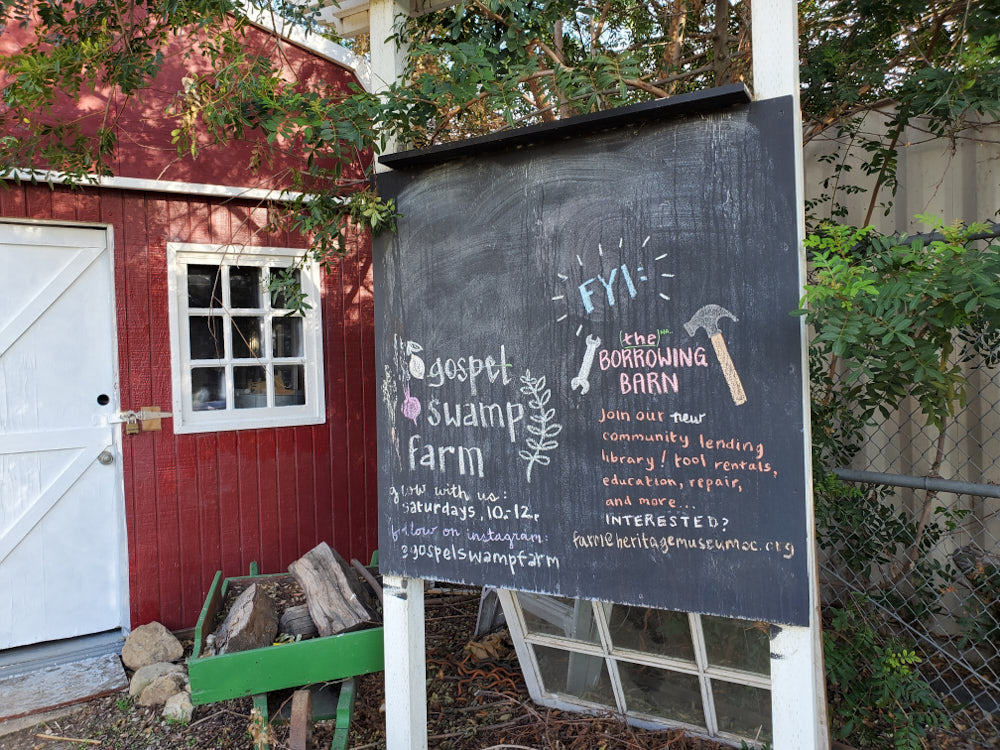 gospel
swamp
farm
grow with us:
Saturdays, 10-12
follow on instagram:
@gospelswampfarm
FYI:
(the)
BORROWING
BARN
Join our new
community lending
library! tool rentals,
education, repair,
and more...
INTERESTED?
farm@heritagemuseumoc.org